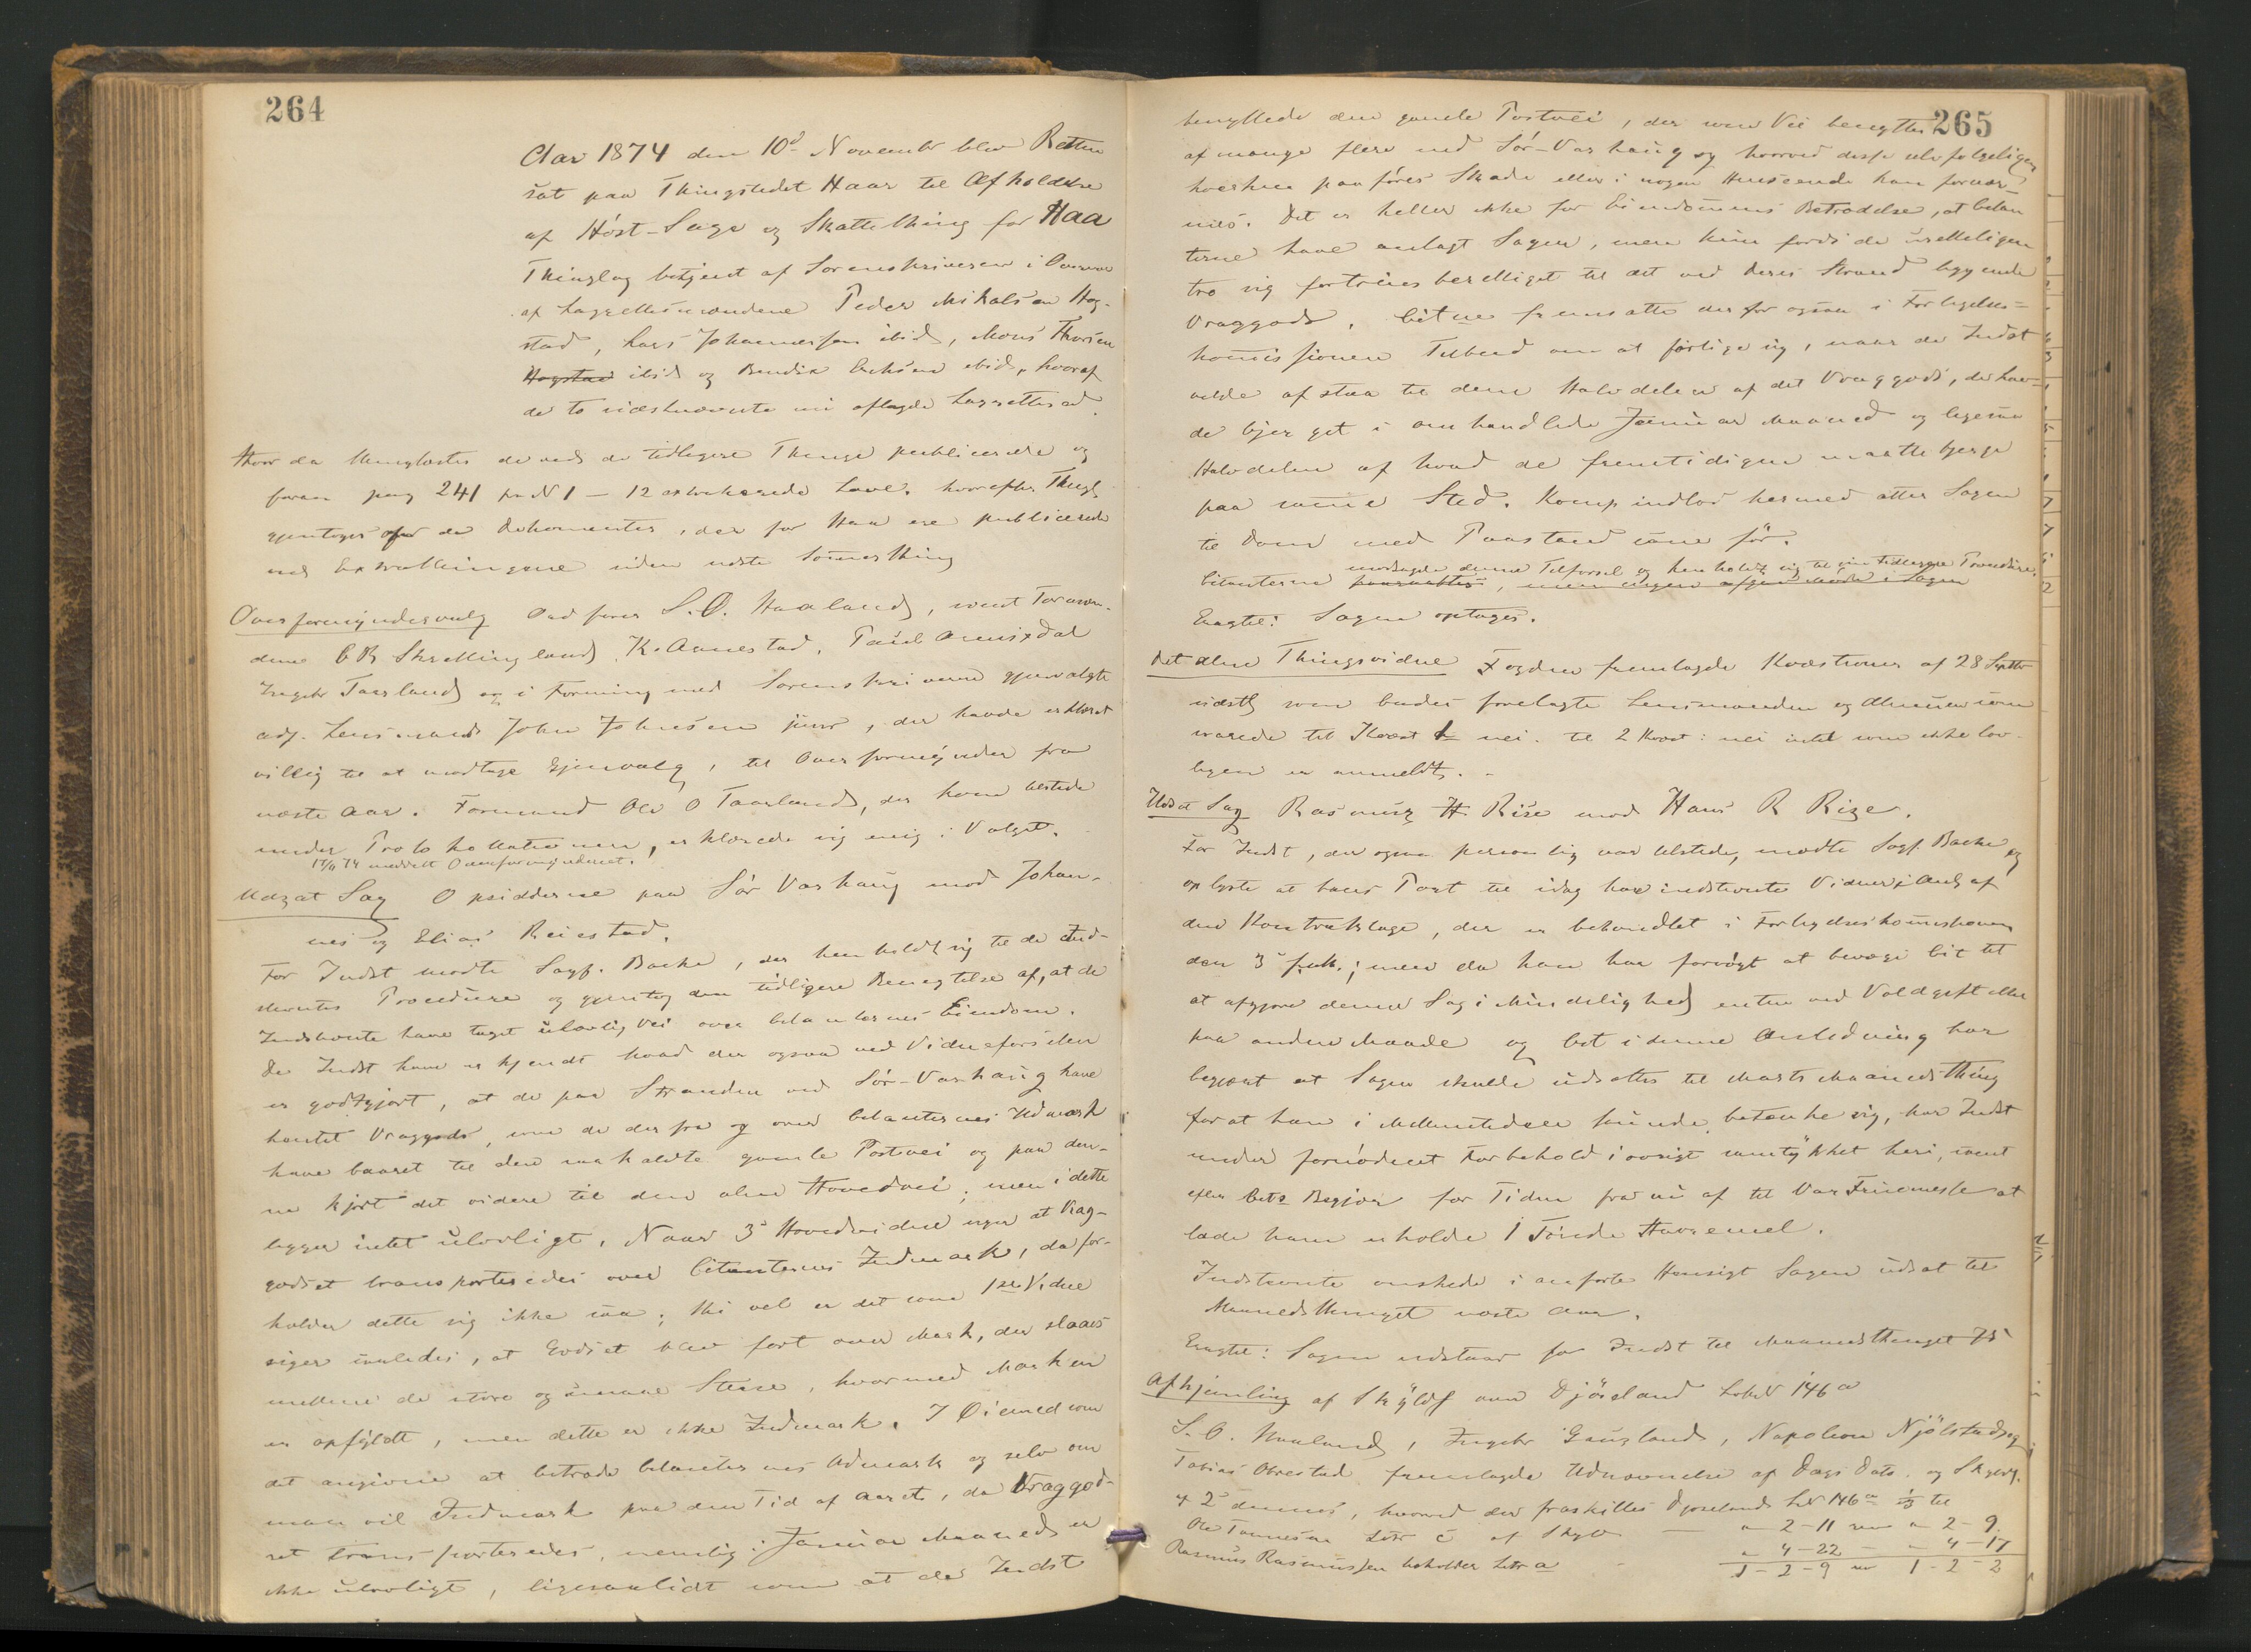 264
Aar 1874 den 10d Novembr blev Retten
sat paa Thingstedet Haar til Afholdelse
af Höst-Sage og Skattething for Haa
Thinglag betjent af Sorenskriveren i Overvær
af Laugrettesmændene Peder Mikalsen Hog-
stad, Lars Johannessen ibid, Mons Thorsen
Hogstad ibid og Bendix Eriksen ibid, hvoraf
de to sidstnævnte nu aflagde Laugrettesed.
Hvor da thinglæstes de ved de tidligere Thinge publicerede og
foran pag 241 fr N 1 - 12 extraherede Love. hvorefter Thingl.
gjentoges af de Dokumenter, der for Haa ere publicerede
ved Extrathingene siden sidste Sommerthing
Overformyndervalg Ordfører S. O. Haaland, samt Formæn-
dene C B Skrettingland, K. Aanestad, Paul
Ingebr Taarland og i Forening med Sorenskriveren gjenvalgte
adj. Lensmand John Johnsen junr, der havde erklæret
villig til at modtage Gjenvalg, til Overformynder fra
næste Aar. Formand Ole O Taarland, der kom tilstede
under Protokollationen, erklærede sig enig i Valget.
17/11 74 meddelt Overformynderiet.
Udsat Sag Opsidderne paa Sör Varhaug mod Johan-
nes og Elias Reiestad.
For Indst mødte Sagf. Backe, der henholdt sig til de Ind-
stevntes Procedure og gjentog den tidligere Benegtelse af, at de
Indstevnte have taget ulovlig Vei over Citanternes Eiendom.
De Indst have erkjendt hvad der ogsaa ved Vidneførselen
er godtgjort, at de paa Stranden ved Sör-Varhaug have
hentet Vraggods, som de derfra og over Citanternes Udmark
have baaret til den saakaldte gamle Postvei og paa den-
ne kjört det videre til den alm Hovedvei; men i dette
ligger intet ulovligt. Naar 3d Hovedvidne siger at Vrag-
godset transporteredes over Citanternes Indmark, da for-
holder dette sig ikke saa; thi vel er det som 1ste Vidne
siger saaledes, at Godset blev fört over Mark, der slaaes
mellem de store og smaae Stene, hvormed Marken
er opfyldt, men dette er ikke Indmark. I Øiemed som
det angivne at betræde Citanternes Udmark og selv om
man vil Indmark paa den Tid af Aaret, da Vraggod-
set transporteredes, nemlig i Januar Maaned er
ikke ulovligt, ligesaalidt som at de Indst
265
benyttede den gamle Postvei, der som Vei benyttes
af mange flere ved Sör-Varhaug og hvorved disse selvfølgeligen
hverken paaføres Skade eller i nogen Henseende kan fornær-
mes. Det er heller ikke for Eiendommens Betrædelse, at Citan
terne have anlagt Sagen, men kun fordi de uretteligen
tro sig fortrins berettiget til det ved deres Strand liggende
Vraggods. Citne fremsatte derfor ogsaa i Forligelses-
kommissionen Tilbud om at forlige sig, naar de Indst
vilde afstaa til dem Halvdelen af det Vraggods, de hav-
de bjerget i omhandlede Januar Maaned og ligesaa
Halvdelen af hvad de fremtidigen maatte bjerge
paa samme Sted. Komp indlod hermed atter Sagen
til Dom med Paastand som för.
modsagde denne Tilførsel og henholdt sig til sin tidligere Procedure.
Citanterne
Eragtet: Sagen optages.
Det alm Thingsvidne Fogden fremlagde Kvæstioner af 28 Septbr
sidstl som bleve forelagte Lensmanden og Almuen som
svarede til Kvæst 1 nei. til 2 Kvæst: nei intet som ikke lov-
ligen er anmeldt. -
Udsat Sag Rasmus H. Rise mod Hans R Rise.
For Indst, der ogsaa personlig var tilstede, mødte Sagf. Backe og
oplyste at hans Part til idag har indstevnte Vidner i Anl af
den Kontraktsage, der er behandlet i Forligelseskommissionen
den 3d f.M.; men da han har forsögt at bevæge Cit til
at afgjøre denne Sag i Mindelighed enten ved Voldgift eller
paa anden Maade og Cit i denne Anledning har
begjært at Sagen skulde udsættes til Marts Maanedsthing
for at han i Mellemtiden kunde betænke sig, har Indst
under fornödent Forbehold iövrigt samtykket heri, samt
efter Cits Begjær for Tiden fra nu af til Var Fruemesse at
lade ham erholde 1 Tönde Havremel.
Indstevnte ønskede i anførte Hensigt Sagen udsat til
Maanedsthinget næste Aar.
Eragtet: Sagen udstaar for Indst til Maanedsthinget 75
Afhjemling af Skyldf over Djösland LøbN 146 a
S. O. Haaland, Ingebr Gausland, Napoleon Njölstad og
Tobias Obrestad fremlagde Udnævnelse af Dags Dato og Skyldf.
af 2d dennes, hvorved der fraskilles Djøseland LN 146a 1/3 til
Ole Tønnesen Litr c af Skyld - " 2-11 nu " 2-9.
Rasmus Rasmussen beholder Litr a - " 4-22 - " 4-17
1-2-9 nu 1-2-2